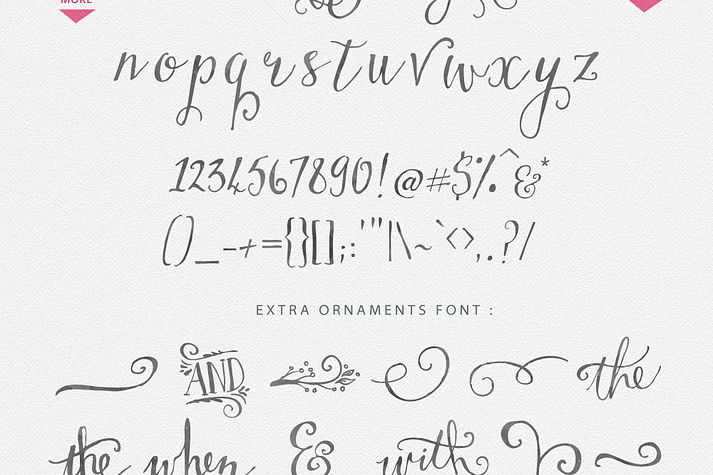 MORE
n o p q r s t u v w x y z
1234567890!@#$%^&*
()_-+={}[];:'"|\~`<>,.?/
EXTRA ORNAMENTS FONT :
AND the
the when & with